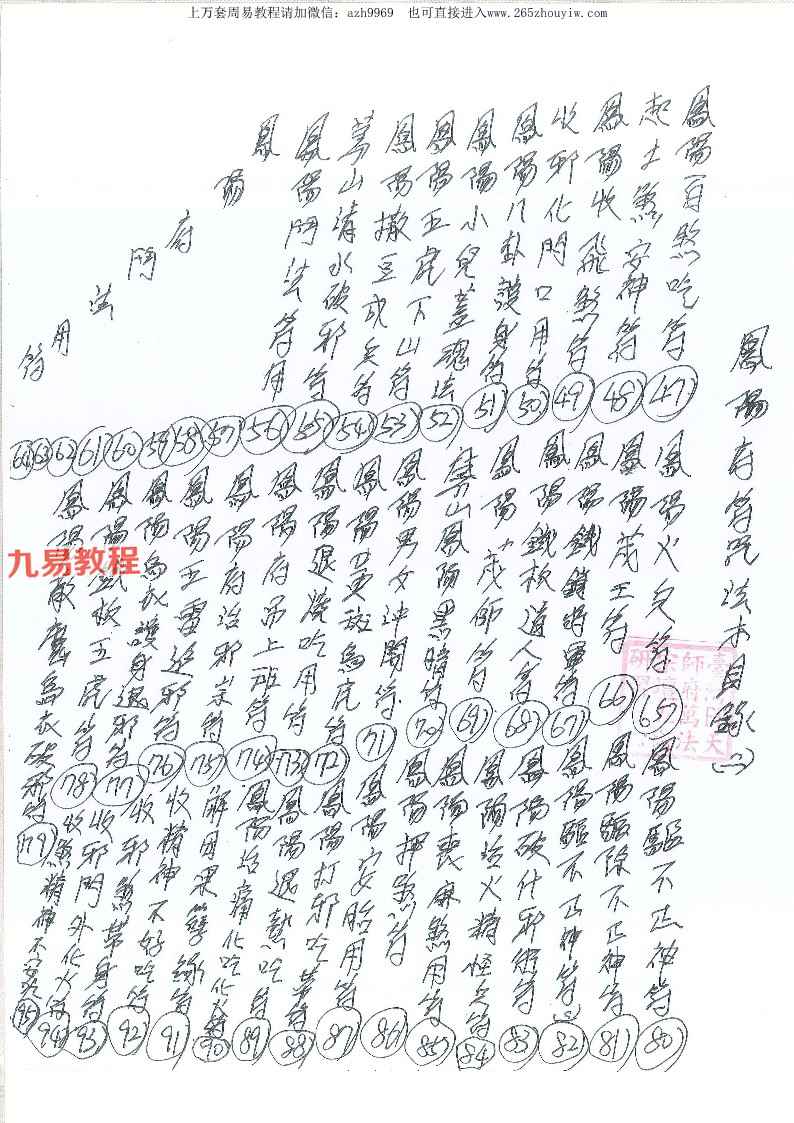 上万套周易教程请加微信：azh9969　也可直接进入www.265zhouyiw.com
鳳陽府符咒法本目錄(二)
鳳陽百煞吃符 47
起土煞安神符 48
鳳陽收飛煞符 49
收邪化門口用符 50
鳳陽八卦護身符 51
鳳陽小兒蓋魂法 52
鳳陽五虎下山符 53
鳳陽撒豆成兵符 54
茅山清水破邪符 55
鳳陽鬥法符用 56
57
58
59
60
61
62
63
64
鳳陽府鬥法用符
鳳陽火兒符 65
鳳陽茂王符 66
鳳陽鐵鎖將軍符 67
鳳陽鐵板道人符 68
鳳陽茂師符 69
茅山鳳陽黑暗符 70
鳳陽男女沖開符 71
鳳陽黃斑為虎符 72
鳳陽退燒吃用符 73
鳳陽府吊上班符 74
鳳陽府治邪祟符 75
鳳陽五雷追邪符 76
鳳陽烏衣護身退邪符 77
鳳陽鐵板五虎符 78
鳳陽破邪符 79
鳳陽驅不正神符 80
鳳陽驅除不正神符 81
鳳陽驅不正神符(2) 82
鳳陽破什邪術符 83
鳳陽治火精怪兵符 84
鳳陽喪麻煞用符 85
鳳陽押煞符 86
鳳陽安胎用符 87
鳳陽打邪吃帶符 88
鳳陽退熱吃符 89
鳳陽治痛化吃化符 90
解因果孽緣符 91
收精神不好吃符 92
收邪煞帶身符 93
收邪門外化火符 94
收煞精神不安 95
九易教程